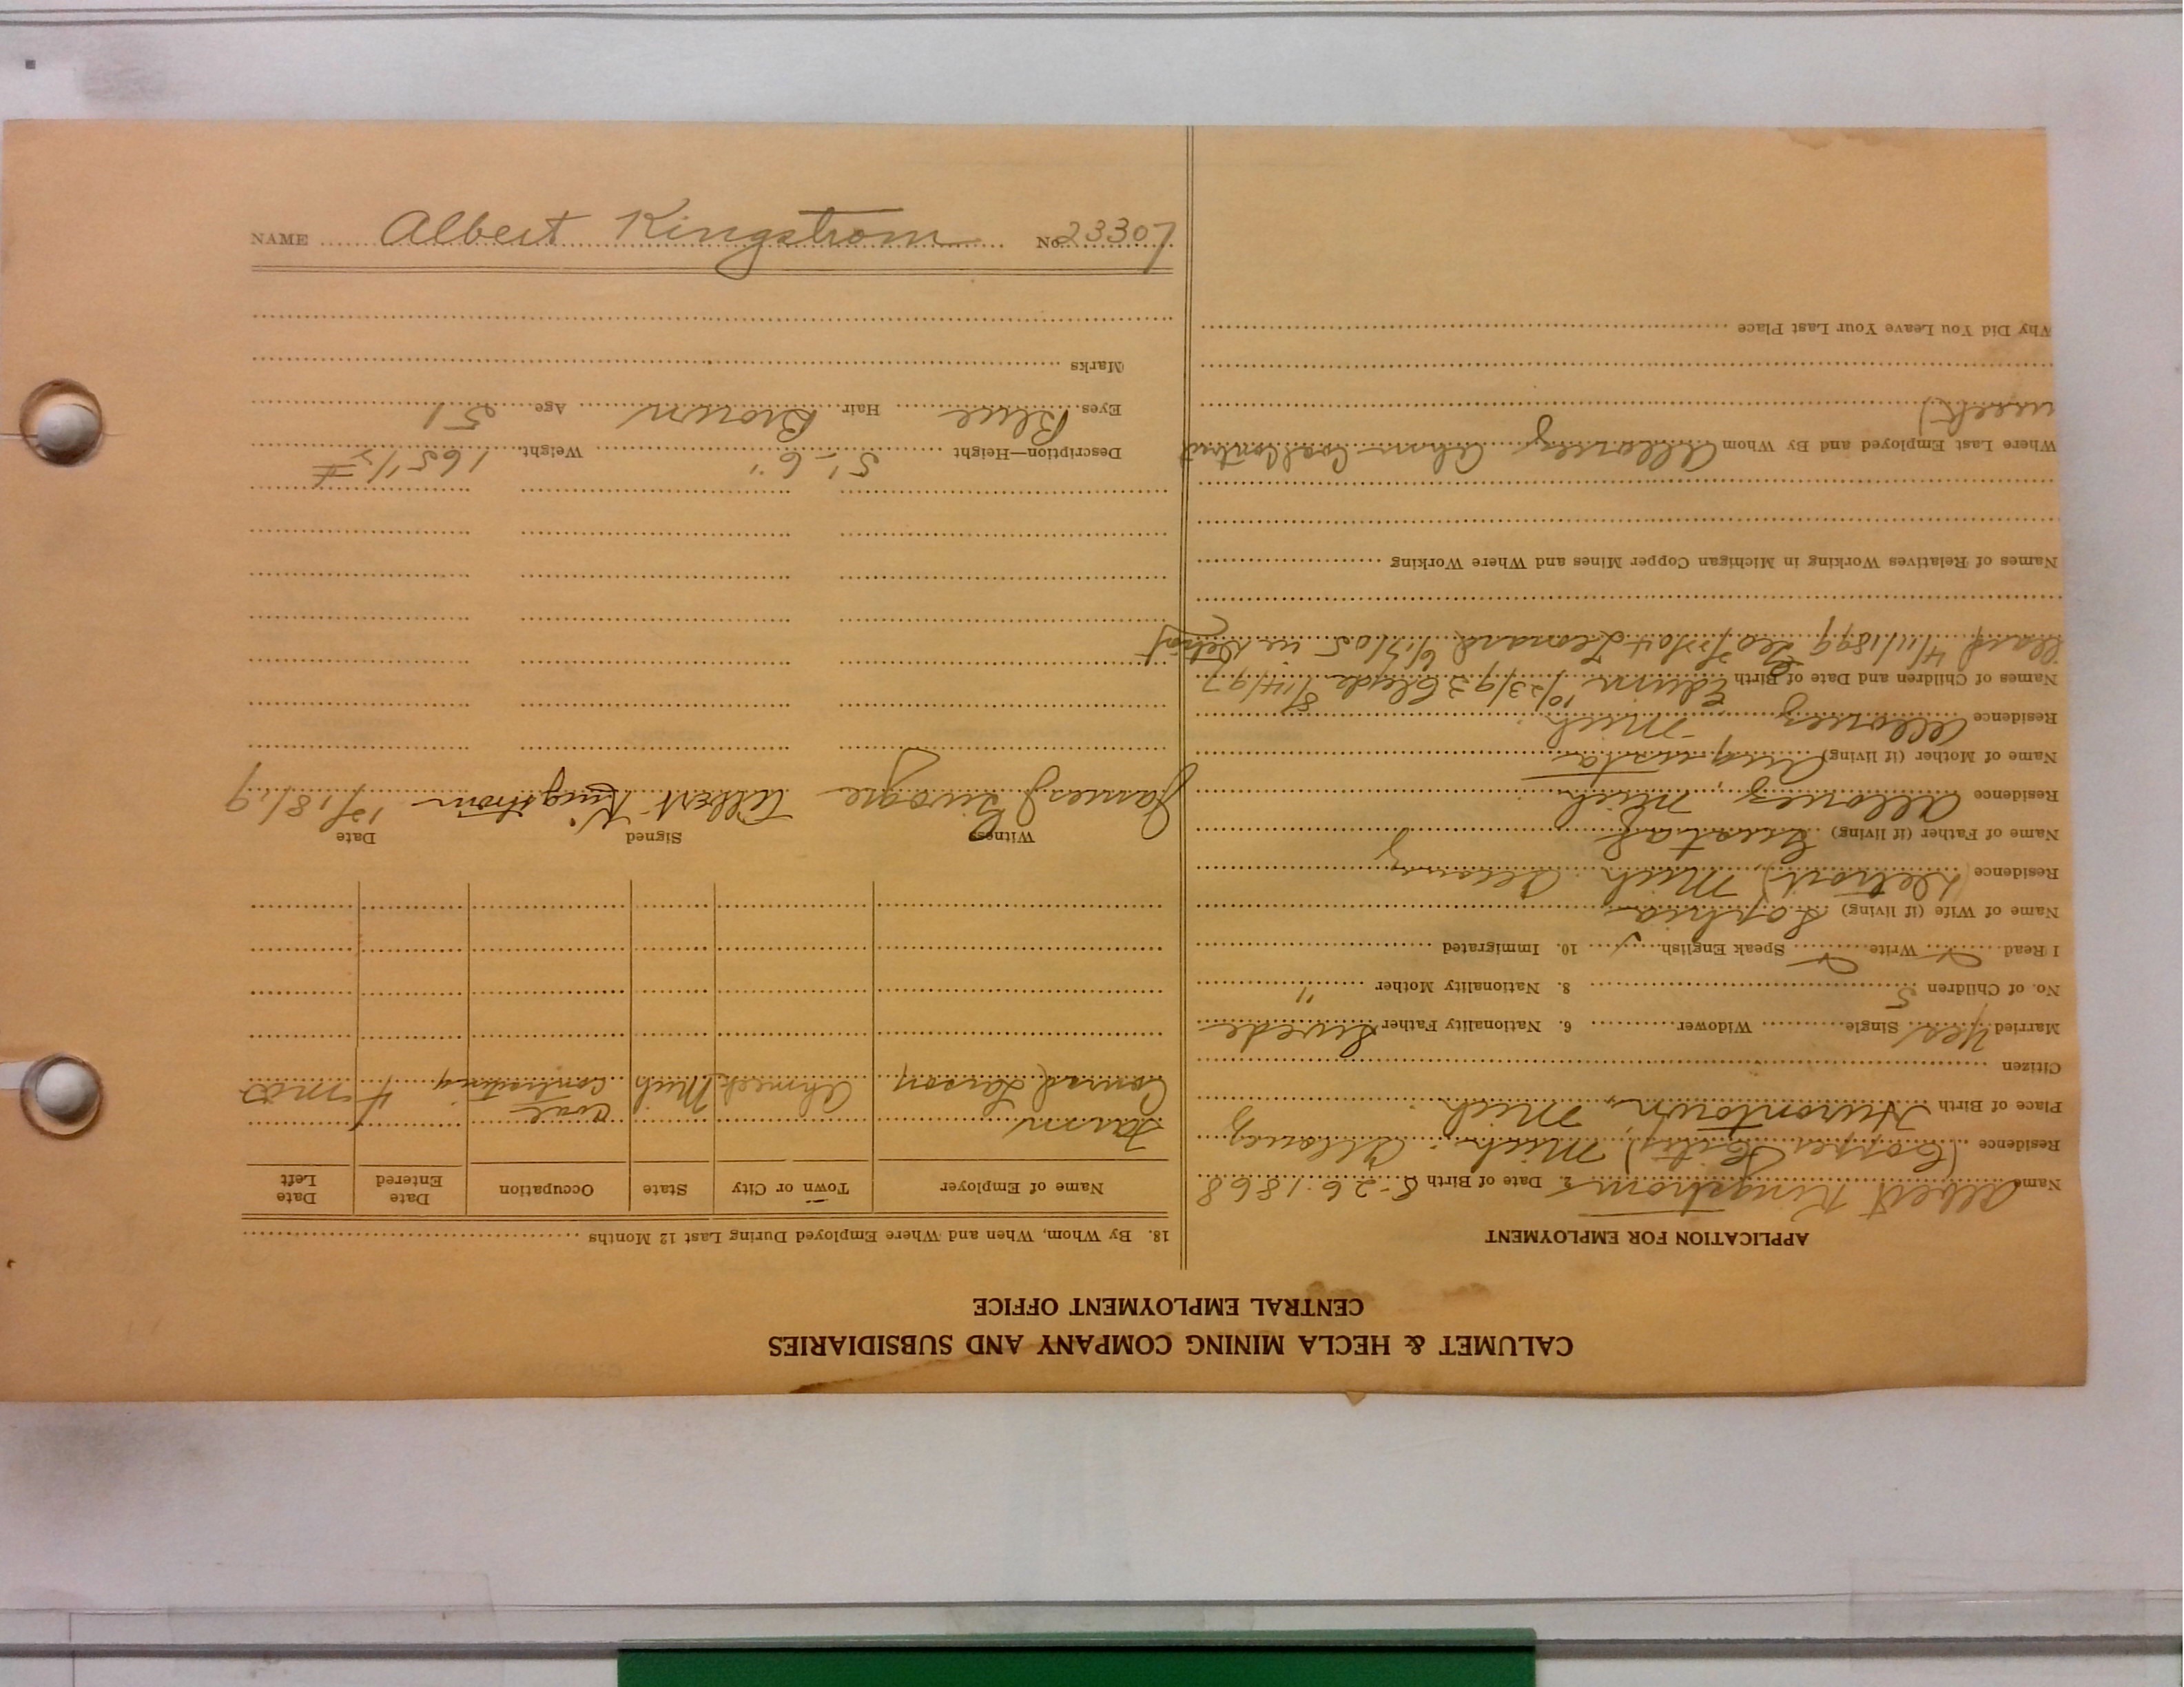 CALUMET & HECLA MINING COMPANY AND SUBSIDIARIES
CENTRAL EMPLOYMENT OFFICE
APPLICATION FOR EMPLOYMENT
Name Albert Kingstrom 2. Date of Birth 8-26-1868
Residence (Copper City) Mich. Allouez
Place of Birth Hurontown, Mich
Citizen
Married Yes Single Widower 6. Nationality Father Swede
No. of Children 5 8. Nationality Mother "
I Read ✓ Write ✓ Speak English ✓ 10. Immigrated
Name of Wife (if living) Sophia
Residence (Detroit) Mich Allouez
Name of Father (if living) Gustaf
Residence Allouez, Mich
Name of Mother (if living) Augusta
Residence Allouez Mich
Names of Children and Date of Birth Edwin 10/23/92 Clyde 8/14/97
4/11/1899 Leo Leonard 6/17/05 in Detroit
Names of Relatives Working in Michigan Copper Mines and Where Working
Where Last Employed and By Whom Allouez Coal Contract
Why Did You Leave Your Last Place
18. By Whom, When and Where Employed During Last 12 Months
Name of Employer Town or City State Occupation Date Entered Date Left
Farm
Conrad Larson Ahmeek Mich Coal contracting 4 mos
Witness Signed Date
James J Albert Kingstrom 12/18/19
Description—Height 5'-6" Weight 165 1/2 #
Eyes Blue Hair Brown Age 51
Marks
NAME Albert Kingstrom No. 23307